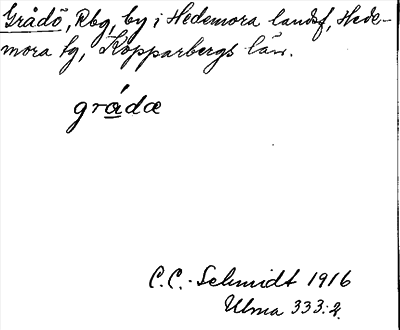 Grådö, Rbg, by i Hedemora landsf, Hede-
mora tg, Kopparbergs län.
grádæ
C.C. Schmidt 1916
Ulma 333:2.